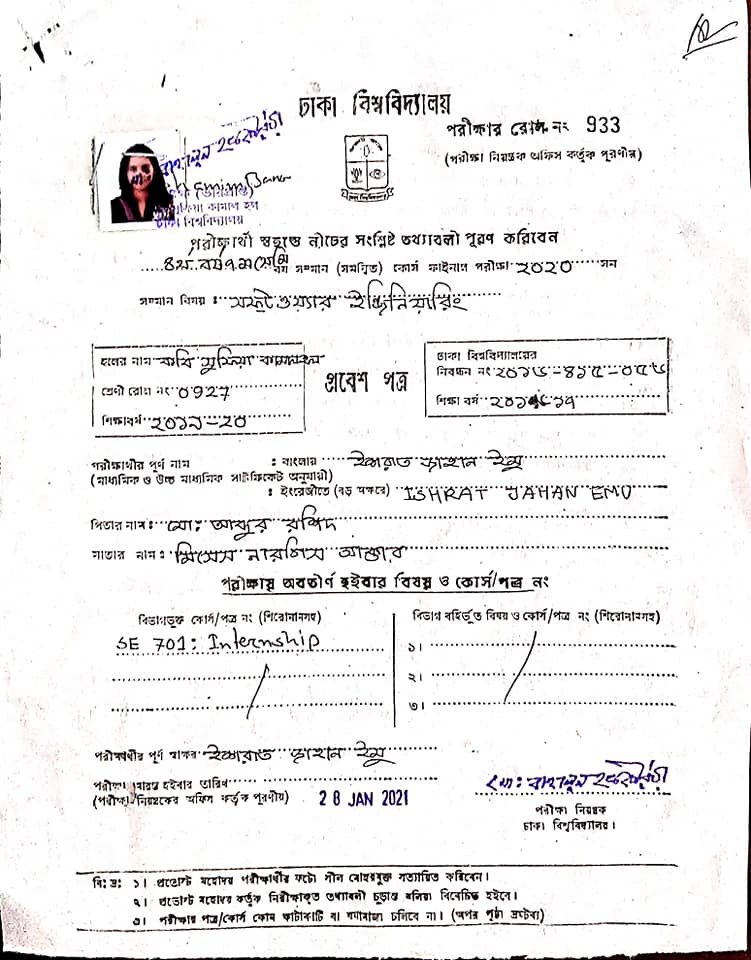 ঢাকা বিশ্ববিদ্যালয়
পরীক্ষার রোল নং 933
(পরীক্ষা নিয়ন্ত্রক অফিস কর্তৃক পূরণীয়)
কামাল হল
ঢাকা বিশ্ববিদ্যালয়
পরীক্ষার্থী স্বহস্তে নীচের সংশ্লিষ্ট তথ্যাবলী পূরণ করিবেন
৪র্থ বর্ষ ৭ম সেমি সম্মান (সমন্বিত) কোর্স ফাইনাল পরীক্ষা ২০২০ সন
সম্মান বিষয় : সফটওয়্যার ইঞ্জিনিয়ারিং
হলের নাম কবি সুফিয়া কামাল হল
শ্রেণী রোল নং 0927
শিক্ষাবর্ষ ২০১৯-২০
প্রবেশ পত্র
ঢাকা বিশ্ববিদ্যালয়ের
নিবন্ধন নং ২০১৬-৪১৫-০৫৬
শিক্ষা বর্ষ
পরীক্ষার্থীর পূর্ণ নাম : বাংলায় ইশরাত জাহান ইমু
(মাধ্যমিক ও উচ্চ মাধ্যমিক সার্টিফিকেট অনুযায়ী)
: ইংরেজীতে (বড় অক্ষরে) ISHRAT JAHAN EMU
পিতার নাম : মো: আব্দুর রশিদ
মাতার নাম : মিসেস নারগিস আক্তার
পরীক্ষায় অবতীর্ণ হইবার বিষয় ও কোর্স/পত্র নং
বিভাগভুক্ত কোর্স/পত্র নং (শিরোনামসহ)
SE 701: Internship
বিভাগ বহির্ভূত বিষয় ও কোর্স/পত্র নং (শিরোনামসহ)
১।
২।
৩।
পরীক্ষার্থীর পূর্ণ স্বাক্ষর ইশরাত জাহান ইমু
পরীক্ষা আরম্ভ হইবার তারিখ
(পরীক্ষা নিয়ন্ত্রকের অফিস কর্তৃক পূরণীয়) 28 JAN 2021
পরীক্ষা নিয়ন্ত্রক
ঢাকা বিশ্ববিদ্যালয়।
বি: দ্র: ১। প্রভোস্ট মহোদয় পরীক্ষার্থীর ফটো সীল মোহরযুক্ত সত্যায়িত করিবেন।
২। প্রভোস্ট মহোদয় কর্তৃক নিরীক্ষাকৃত তথ্যাবলী চূড়ান্ত বলিয়া বিবেচিত হইবে।
৩। পরীক্ষার পত্র/কোর্স কোন কাটাকাটি বা ঘষামাজা চলিবে না। (অপর পৃষ্ঠা দ্রষ্টব্য)